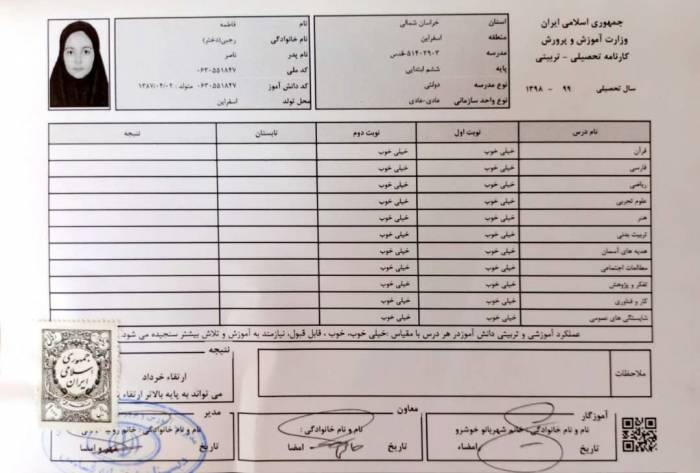 جمهوری اسلامی ایران
وزارت آموزش و پرورش
کارنامه تحصیلی - تربیتی
سال تحصیلی ۹۹ - ۱۳۹۸
استان خراسان شمالی
منطقه اسفراین
مدرسه ۵۱۴۰۲۹۰۳-قدس
پایه ششم ابتدایی
نوع مدرسه دولتی
نوع واحد سازمانی عادی-عادی
نام فاطمه
نام خانوادگی رجبی(دختر)
نام پدر ناصر
کد ملی ۰۶۳۰۵۵۱۸۴۷
کد دانش آموز ۰۶۳۰۵۵۱۸۴۷ متولد: ۱۳۸۷/۰۴/۰۲
محل تولد اسفراین
نام درس نوبت اول نوبت دوم تابستان نتیجه
قرآن خیلی خوب خیلی خوب
فارسی خیلی خوب خیلی خوب
ریاضی خیلی خوب خیلی خوب
علوم تجربی خیلی خوب خیلی خوب
هنر خیلی خوب خیلی خوب
تربیت بدنی خیلی خوب خیلی خوب
هدیه های آسمان خیلی خوب خیلی خوب
مطالعات اجتماعی خیلی خوب خیلی خوب
تفکر و پژوهش خیلی خوب خیلی خوب
کار و فناوری خیلی خوب خیلی خوب
شایستگی های عمومی خیلی خوب خیلی خوب
عملکرد آموزشی و تربیتی دانش آموزدر هر درس با مقیاس :خیلی خوب، خوب ، قابل قبول، نیازمند به آموزش و تلاش بیشتر سنجیده می شود.
ملاحظات
نتیجه
ارتقاء خرداد
می تواند به پایه بالاتر ارتقاء
جمهوری
اسلامی
ایران
آموزگار
نام و نام خانوادگی: خانم شهربانو خوشرو
تاریخ امضاء
معاون
نام و نام خانوادگی:
تاریخ امضا
مدیر
نام و نام خانوادگی: خانم
تاریخ امضا